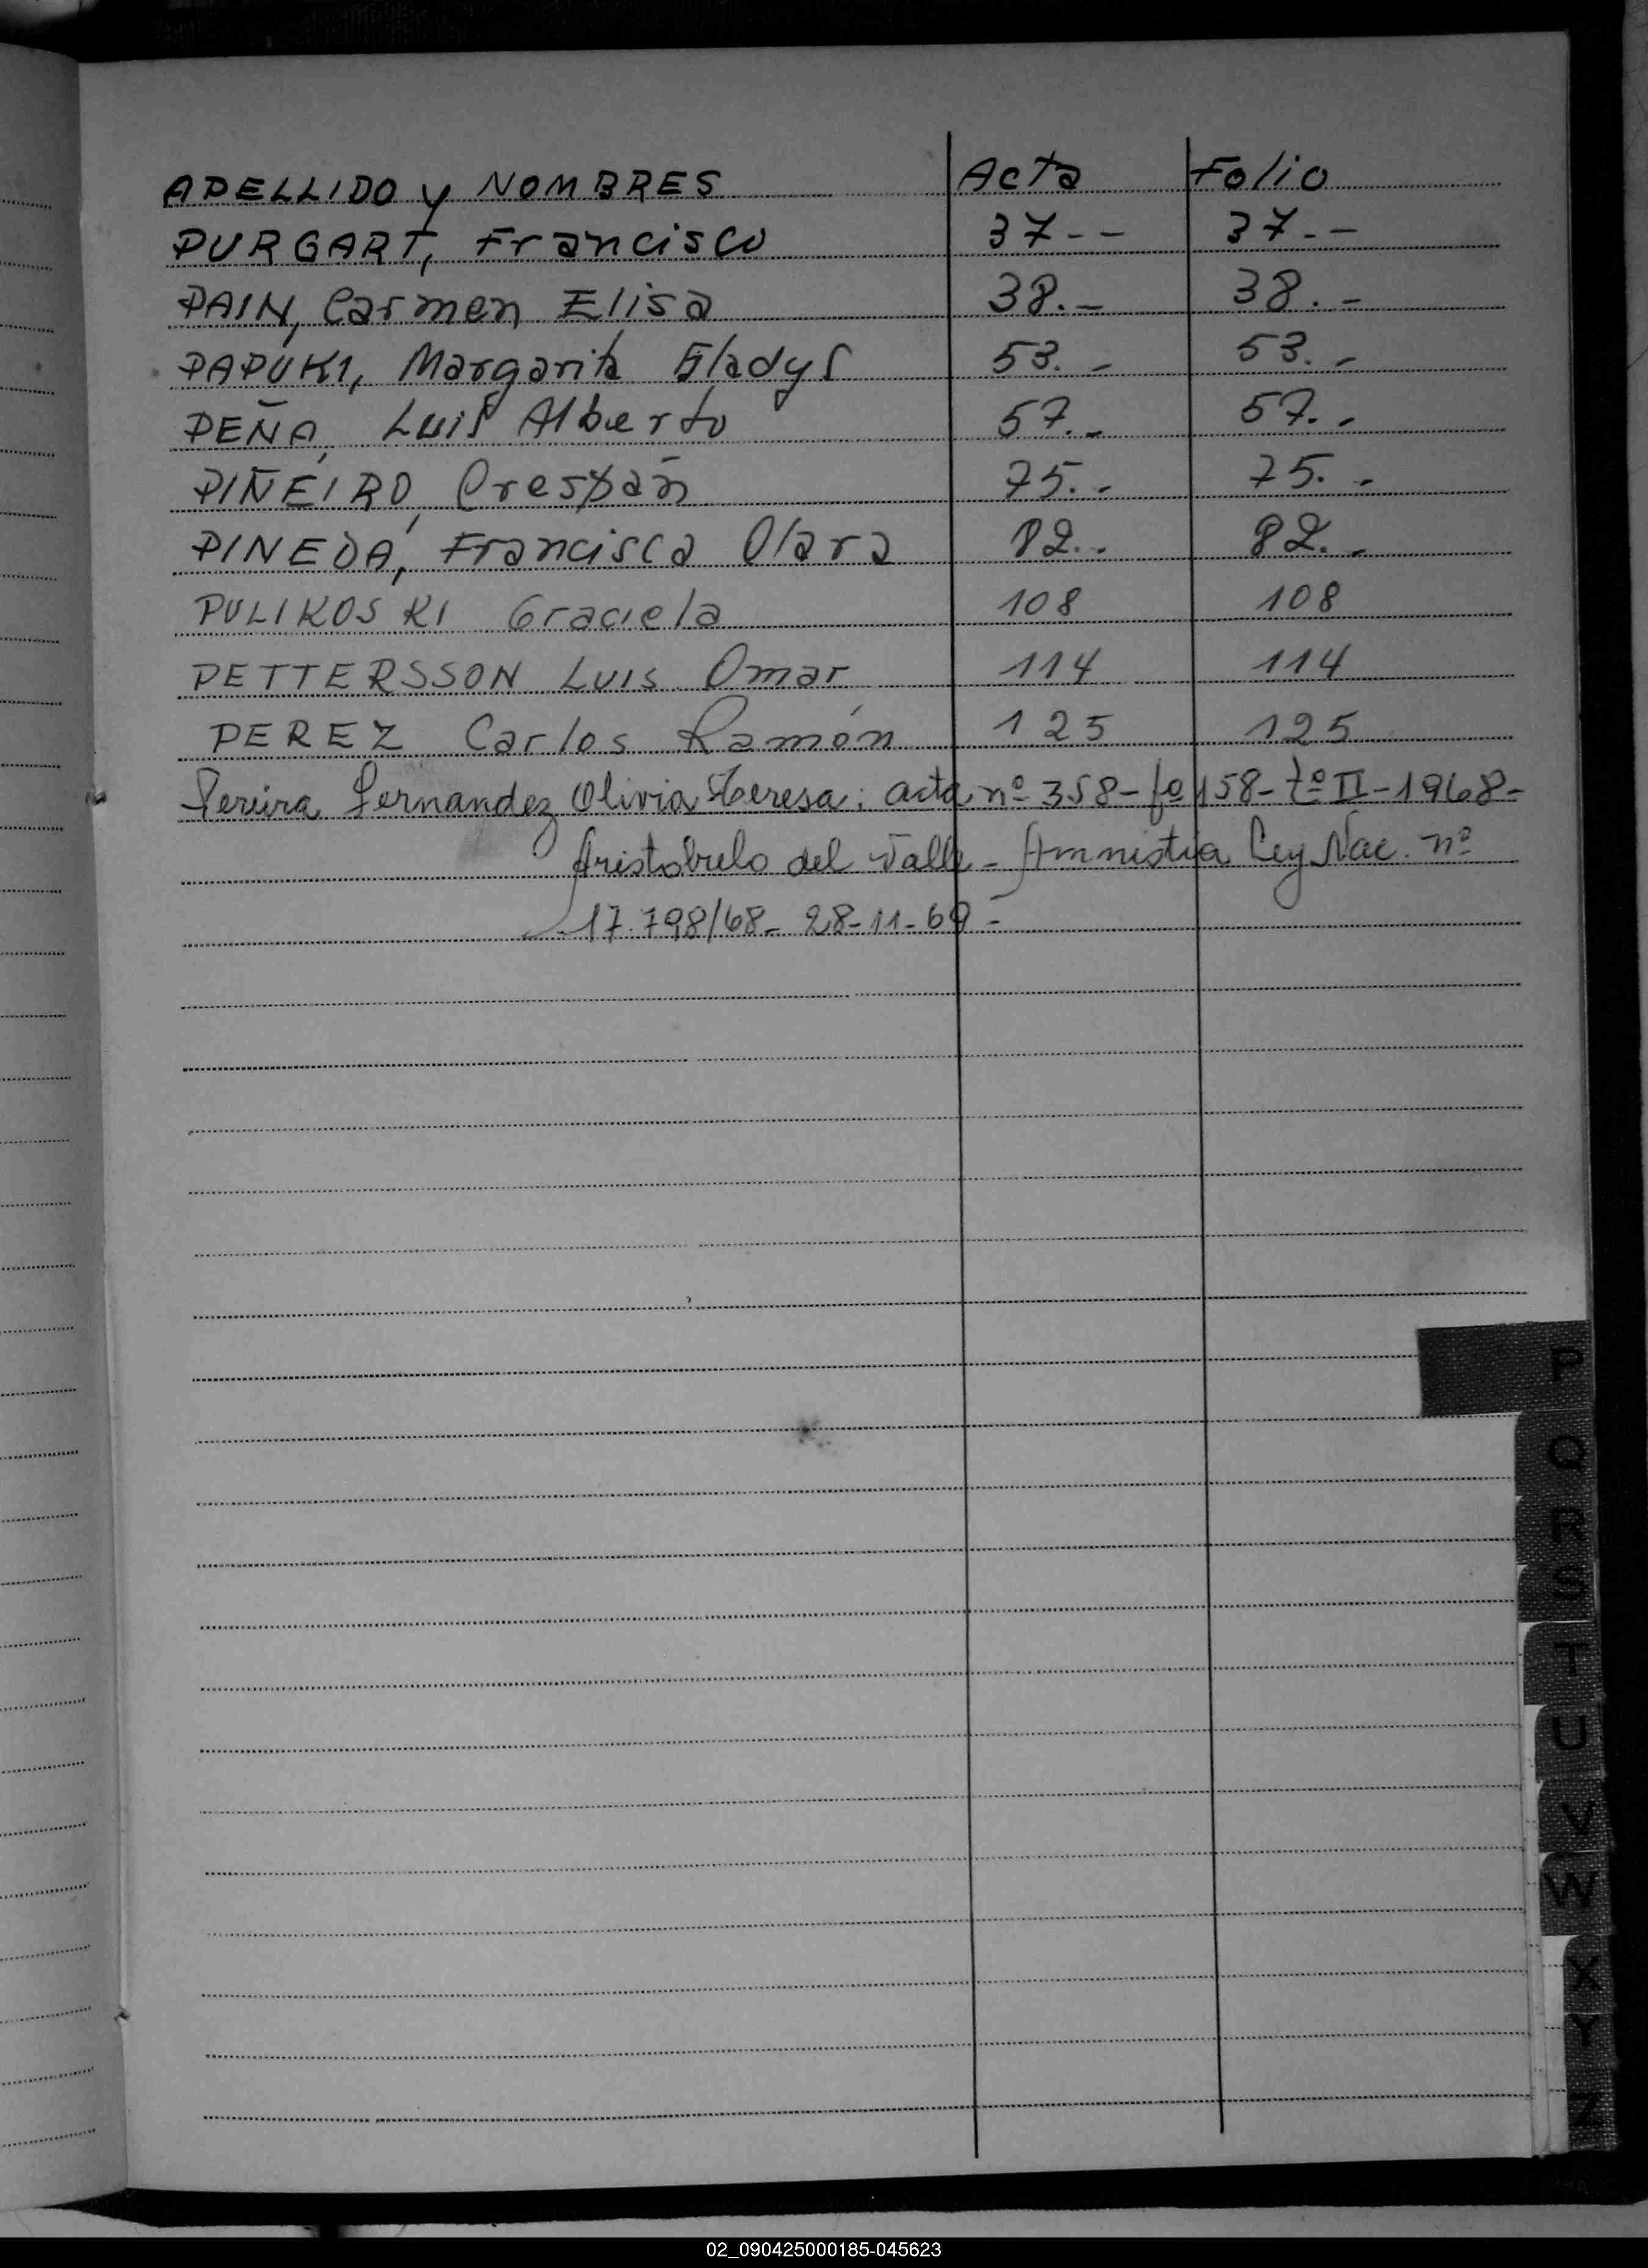 APELLIDO y NOMBRES Acta Folio
PURGART, Francisco 37.-- 37.--
PAIN, Carmen Elisa 38.- 38.-
PAPUKI, Margarita Gladys 53.- 53.-
PEÑA, Luis Alberto 57.- 57.-
PIÑEIRO, Crespán 75.- 75.-
PINEDA, Francisca Clara 82.- 82.-
PULIKOSKI Graciela 108 108
PETTERSSON LUIS Omar 114 114
PEREZ Carlos Ramón 125 125
Pereira Fernandez Olivia Teresa: acta nº 358- fº 158- tº II - 1968-
Aristobulo del Valle - Amnistia Ley Nac. nº
17.798/68- 28-11-69-
P
Q
R
S
T
U
V
W
X
Y
Z
02_090425000185-045623